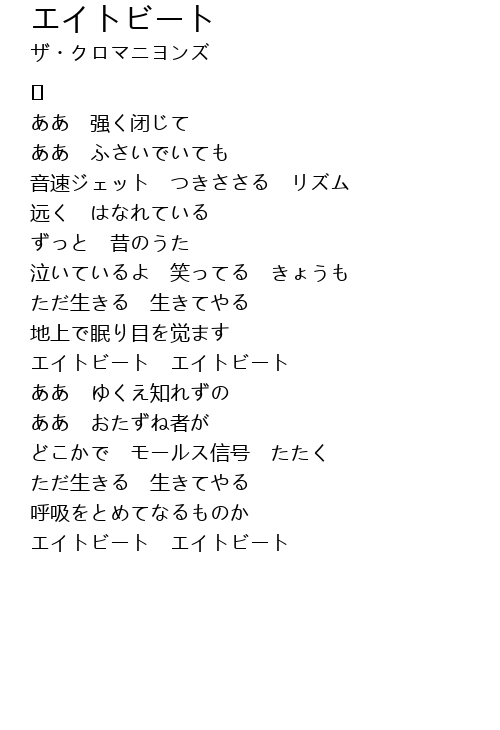 エイトビート
ザ・クロマニヨンズ
ああ　强く闭じて
ああ　ふさいでいても
音速ジェット　つきささる　リズム
远く　はなれている
ずっと　昔のうた
泣いているよ　笑ってる　きょうも
ただ生きる　生きてやる
地上で眠り目を觉ます
エイトビート　エイトビート
ああ　ゆくえ知れずの
ああ　おたずね者が
どこかで　モールス信号　たたく
ただ生きる　生きてやる
呼吸をとめてなるものか
エイトビート　エイトビート